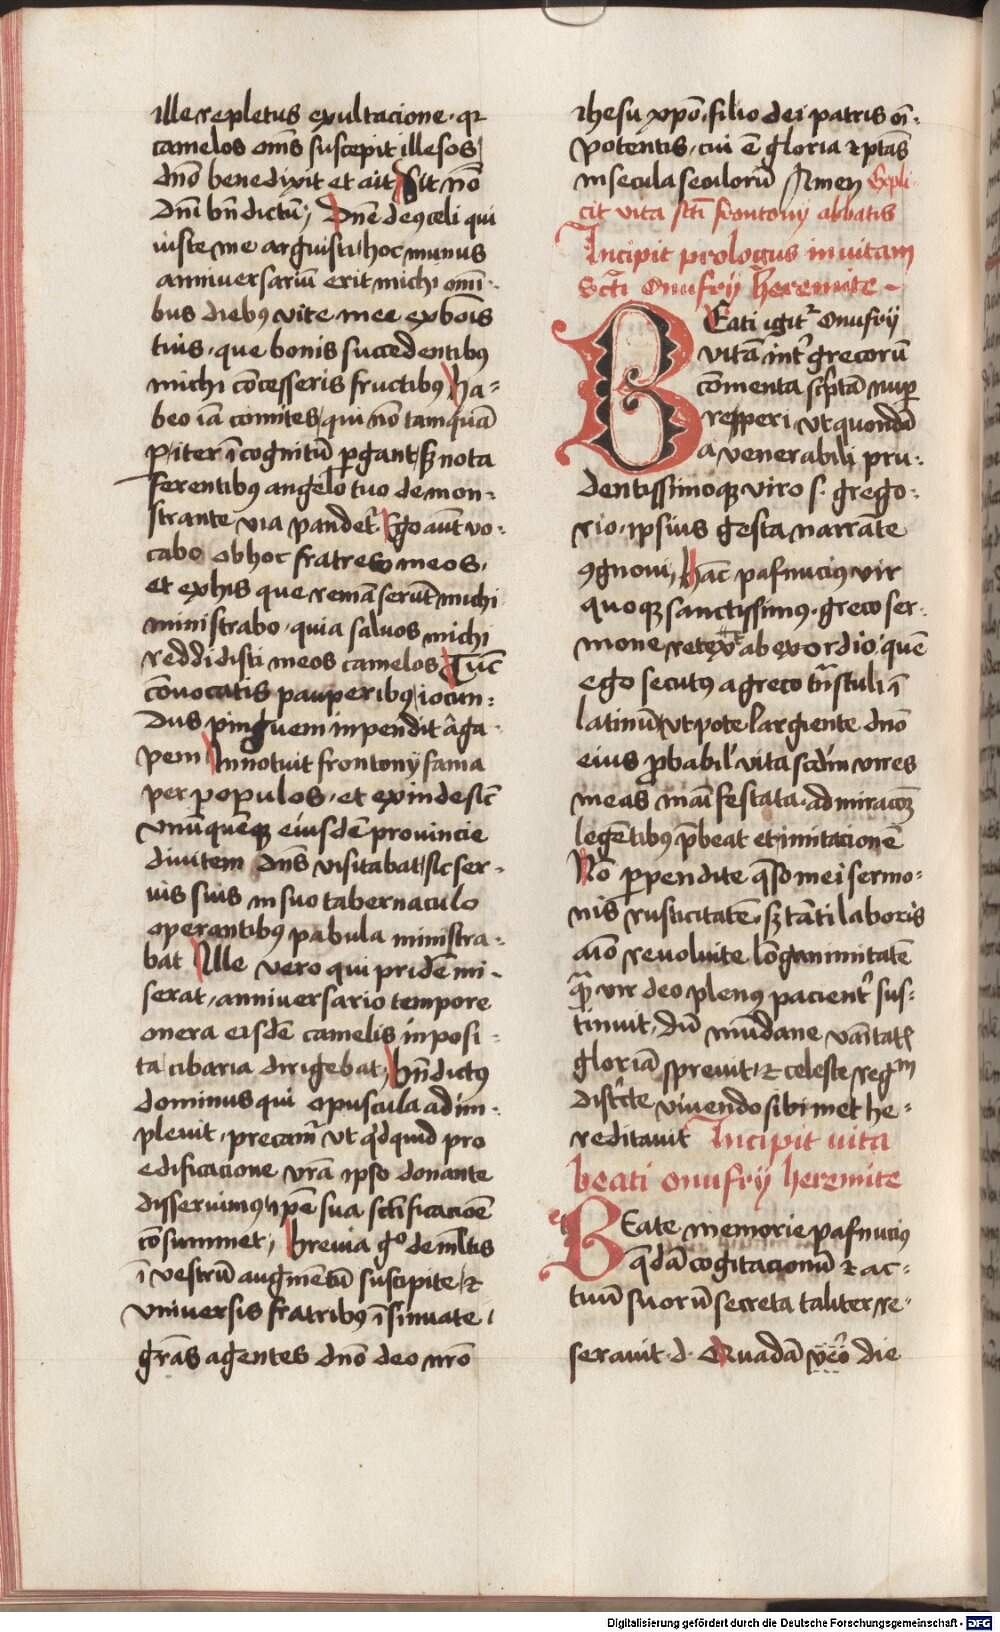 ille repletus exultacione · qr
camelos om̄s suscepit illesos
dn̄o benedixit et ait Sit nō
dn̄i bn̄dictū ; Dn̄e deꝰ celi qui
iuste me arguisti hoc munus
anniuersariū erit michi om̄i-
bus diebꝰ vite mee ex bōis
tuis · que bonis succedentibꝰ
michi cōcesseris fructibꝰ ha-
beo iā comites qui nō tamquā
ꝑ iter īcognitū ꝑgant sꝫ nota
ferentibꝰ angelo tuo demon-
strante via pandet᷑ Ego aūt vo-
cabo ob hoc fratres meos ·
et ex his que remāserūt michi
ministrabo · quia saluos michi
reddidisti meos camelos Tūc
cōuocatis pauperibꝰ iocun-
dus pinguem inpendit aga-
pem Innotuit frontonij fama
per populos · et exinde sic̄
vnūquēqꝫ eiusdē prouincie
diuitem dn̄s visitabat sic ser-
uis suis in suo tabernaculo
operantibꝰ pabula ministra-
bat Ille vero qui pridē mi-
serat · anniuersario tempore
onera eisdē camelis inposi-
ta cibaria dirigebat · bn̄dictꝰ
dominus qui opuscula adim-
pleuit · precam᷑ vt qͥdquid pro
edificacione vr̄a ipso donante
disseruimus ip̄e sua sc̄ificacioē
cōsummet ; breuia gͦ de ml̄tis
ī vestrū augmētū suscipite ⁊
vniuersis fratribꝰ īsinuate ·
gr̄as agentes dn̄o deo nr̄o
ihesu xp̄o · filio dei patris oī-
potentis · cui ē gloria ⁊ ptās
in secula seculorū Amen Expli-
cit vita sc̄ti frontonij abbatis
Incipit prologus in uitam
Sc̄ti Onufrij heremite
Beati igit᷑ Onufrij
vitā int᷑ grecorū
cōmenta sc̄ptā nuꝑ
repperi vt quondā
a venerabili pru-
dentissimoqꝫ viro s. grego-
rio · ipsius gesta narrāte
ꝯgnoui, hāc pafnucius vir
quoqꝫ sanctissimꝰ · greco ser-
mone retexͭ ab exordio quē
ego secutꝰ a greco tn̄stuli ī
latinū vt pote largiente dn̄o
eius ꝓbabil᷑ vita scd̄m vires
meas māifestata · admiracōꝫ
legētibꝰ p̄beat et imitacionē
Nō ꝑpendite q̄so mei sermo-
nis rusticitatē sꝫ tāti laboris
aīo reuoluite lōganimitatē
qͣꝫ vir deo plenꝰ pacient᷑ sus-
tinuit, dū mūdane vanitatꝭ
gloriā spreuit · ⁊ celeste regͫ
distcte viuendo sibimet he-
reditauit Incipit uita
beati onufrij heremite
Beate memorie pafnucius
q̄dā cogitacionū ⁊ ac-
tuū suorū secreta taliter re-
serauit · d · Quadā v̄o die